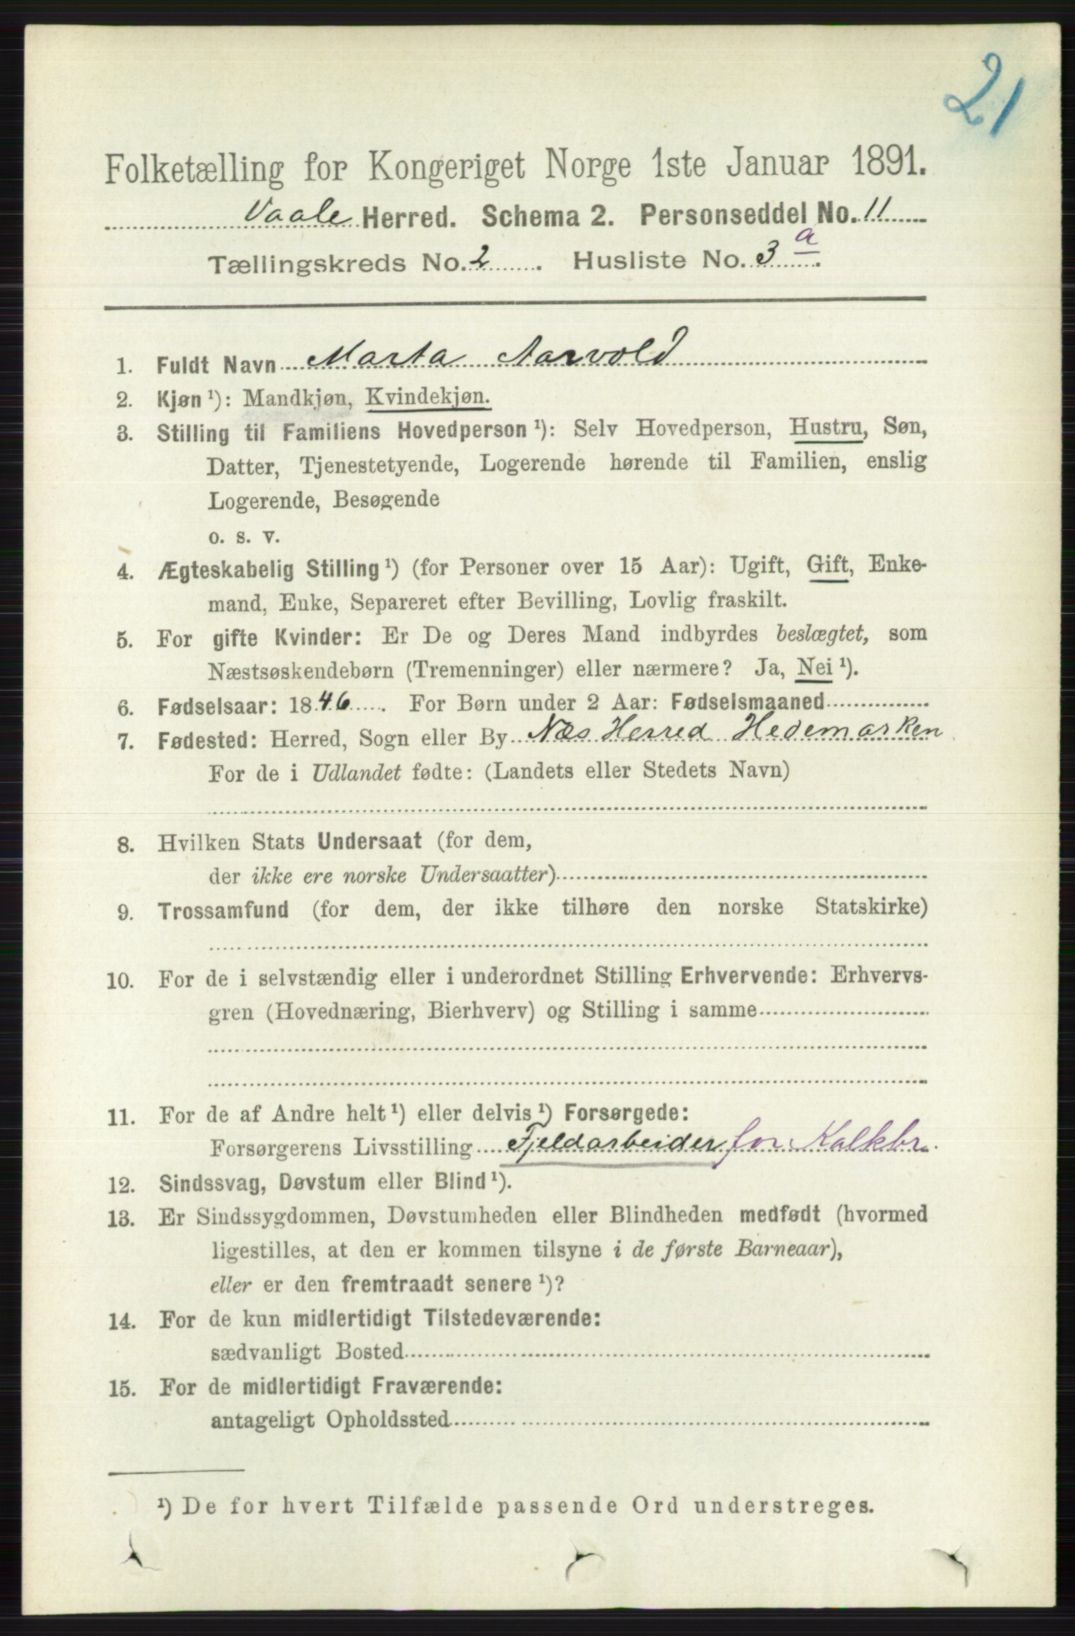 21
Folketælling for Kongeriget Norge 1ste Januar 1891.
Vaale Herred. Schema 2. Personseddel No. 11
Tællingskreds No. 2. Husliste No. 3 a.
1. Fuldt Navn Marta Aarvold
2. Kjøn ¹): Mandkjøn, Kvindekjøn.
3. Stilling til Familiens Hovedperson ¹): Selv Hovedperson, Hustru, Søn,
Datter, Tjenestetyende, Logerende hørende til Familien, enslig
Logerende, Besøgende
o. s. v.
4. Ægteskabelig Stilling ¹) (for Personer over 15 Aar): Ugift, Gift, Enke-
mand, Enke, Separeret efter Bevilling, Lovlig fraskilt.
5. For gifte Kvinder: Er De og Deres Mand indbyrdes beslægtet, som
Næstsøskendebørn (Tremenninger) eller nærmere? Ja, Nei ¹).
6. Fødselsaar: 1846. For Børn under 2 Aar: Fødselsmaaned
7. Fødested: Herred, Sogn eller By Næs Herred Hedemarken
For de i Udlandet fødte: (Landets eller Stedets Navn)
8. Hvilken Stats Undersaat (for dem,
der ikke ere norske Undersaatter)
9. Trossamfund (for dem, der ikke tilhøre den norske Statskirke)
10. For de i selvstændig eller i underordnet Stilling Erhvervende: Erhvervs-
gren (Hovednæring, Bierhverv) og Stilling i samme
11. For de af Andre helt ¹) eller delvis ¹) Forsørgede:
Forsørgerens Livsstilling Fjeldarbeider for Kalkbr.
12. Sindssvag, Døvstum eller Blind ¹).
13. Er Sindssygdommen, Døvstumheden eller Blindheden medfødt (hvormed
ligestilles, at den er kommen tilsyne i de første Barneaar),
eller er den fremtraadt senere ¹)?
14. For de kun midlertidigt Tilstedeværende:
sædvanligt Bosted
15. For de midlertidigt Fraværende:
antageligt Opholdssted
¹) De for hvert Tilfælde passende Ord understreges.